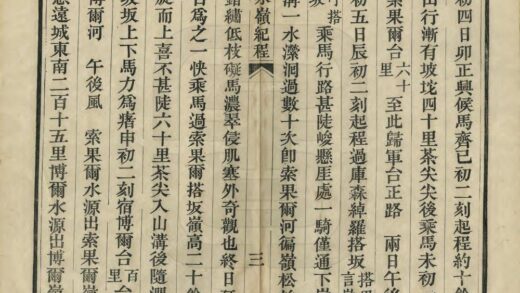 初四日卯正興候馬齊已初二刻起程約十餘
出行漸有坡坨四十里茶尖尖後乘馬未初
索果爾台六十里至此歸軍台正路 兩日午後
初五日辰初二刻起程過庫森綽羅搭坂
乘馬行路甚陡峻懸厓處一騎僅通下
溝一水瀠洄過數十次卽索果爾河徧嶺松
嶺紀程 三
錯繡低枝礙馬濃翠侵肌塞外奇觀也終日
台爲之一快乘馬過索果爾搭坂嶺高二十餘
旋而上喜不甚陡六十里茶尖入山溝後隨澗
坂坂上下馬力爲瘏申初二刻宿博爾台百里
博爾河 午後風 索果爾水源出索果爾
遠城東南二百十五里博爾水源出博爾嶺